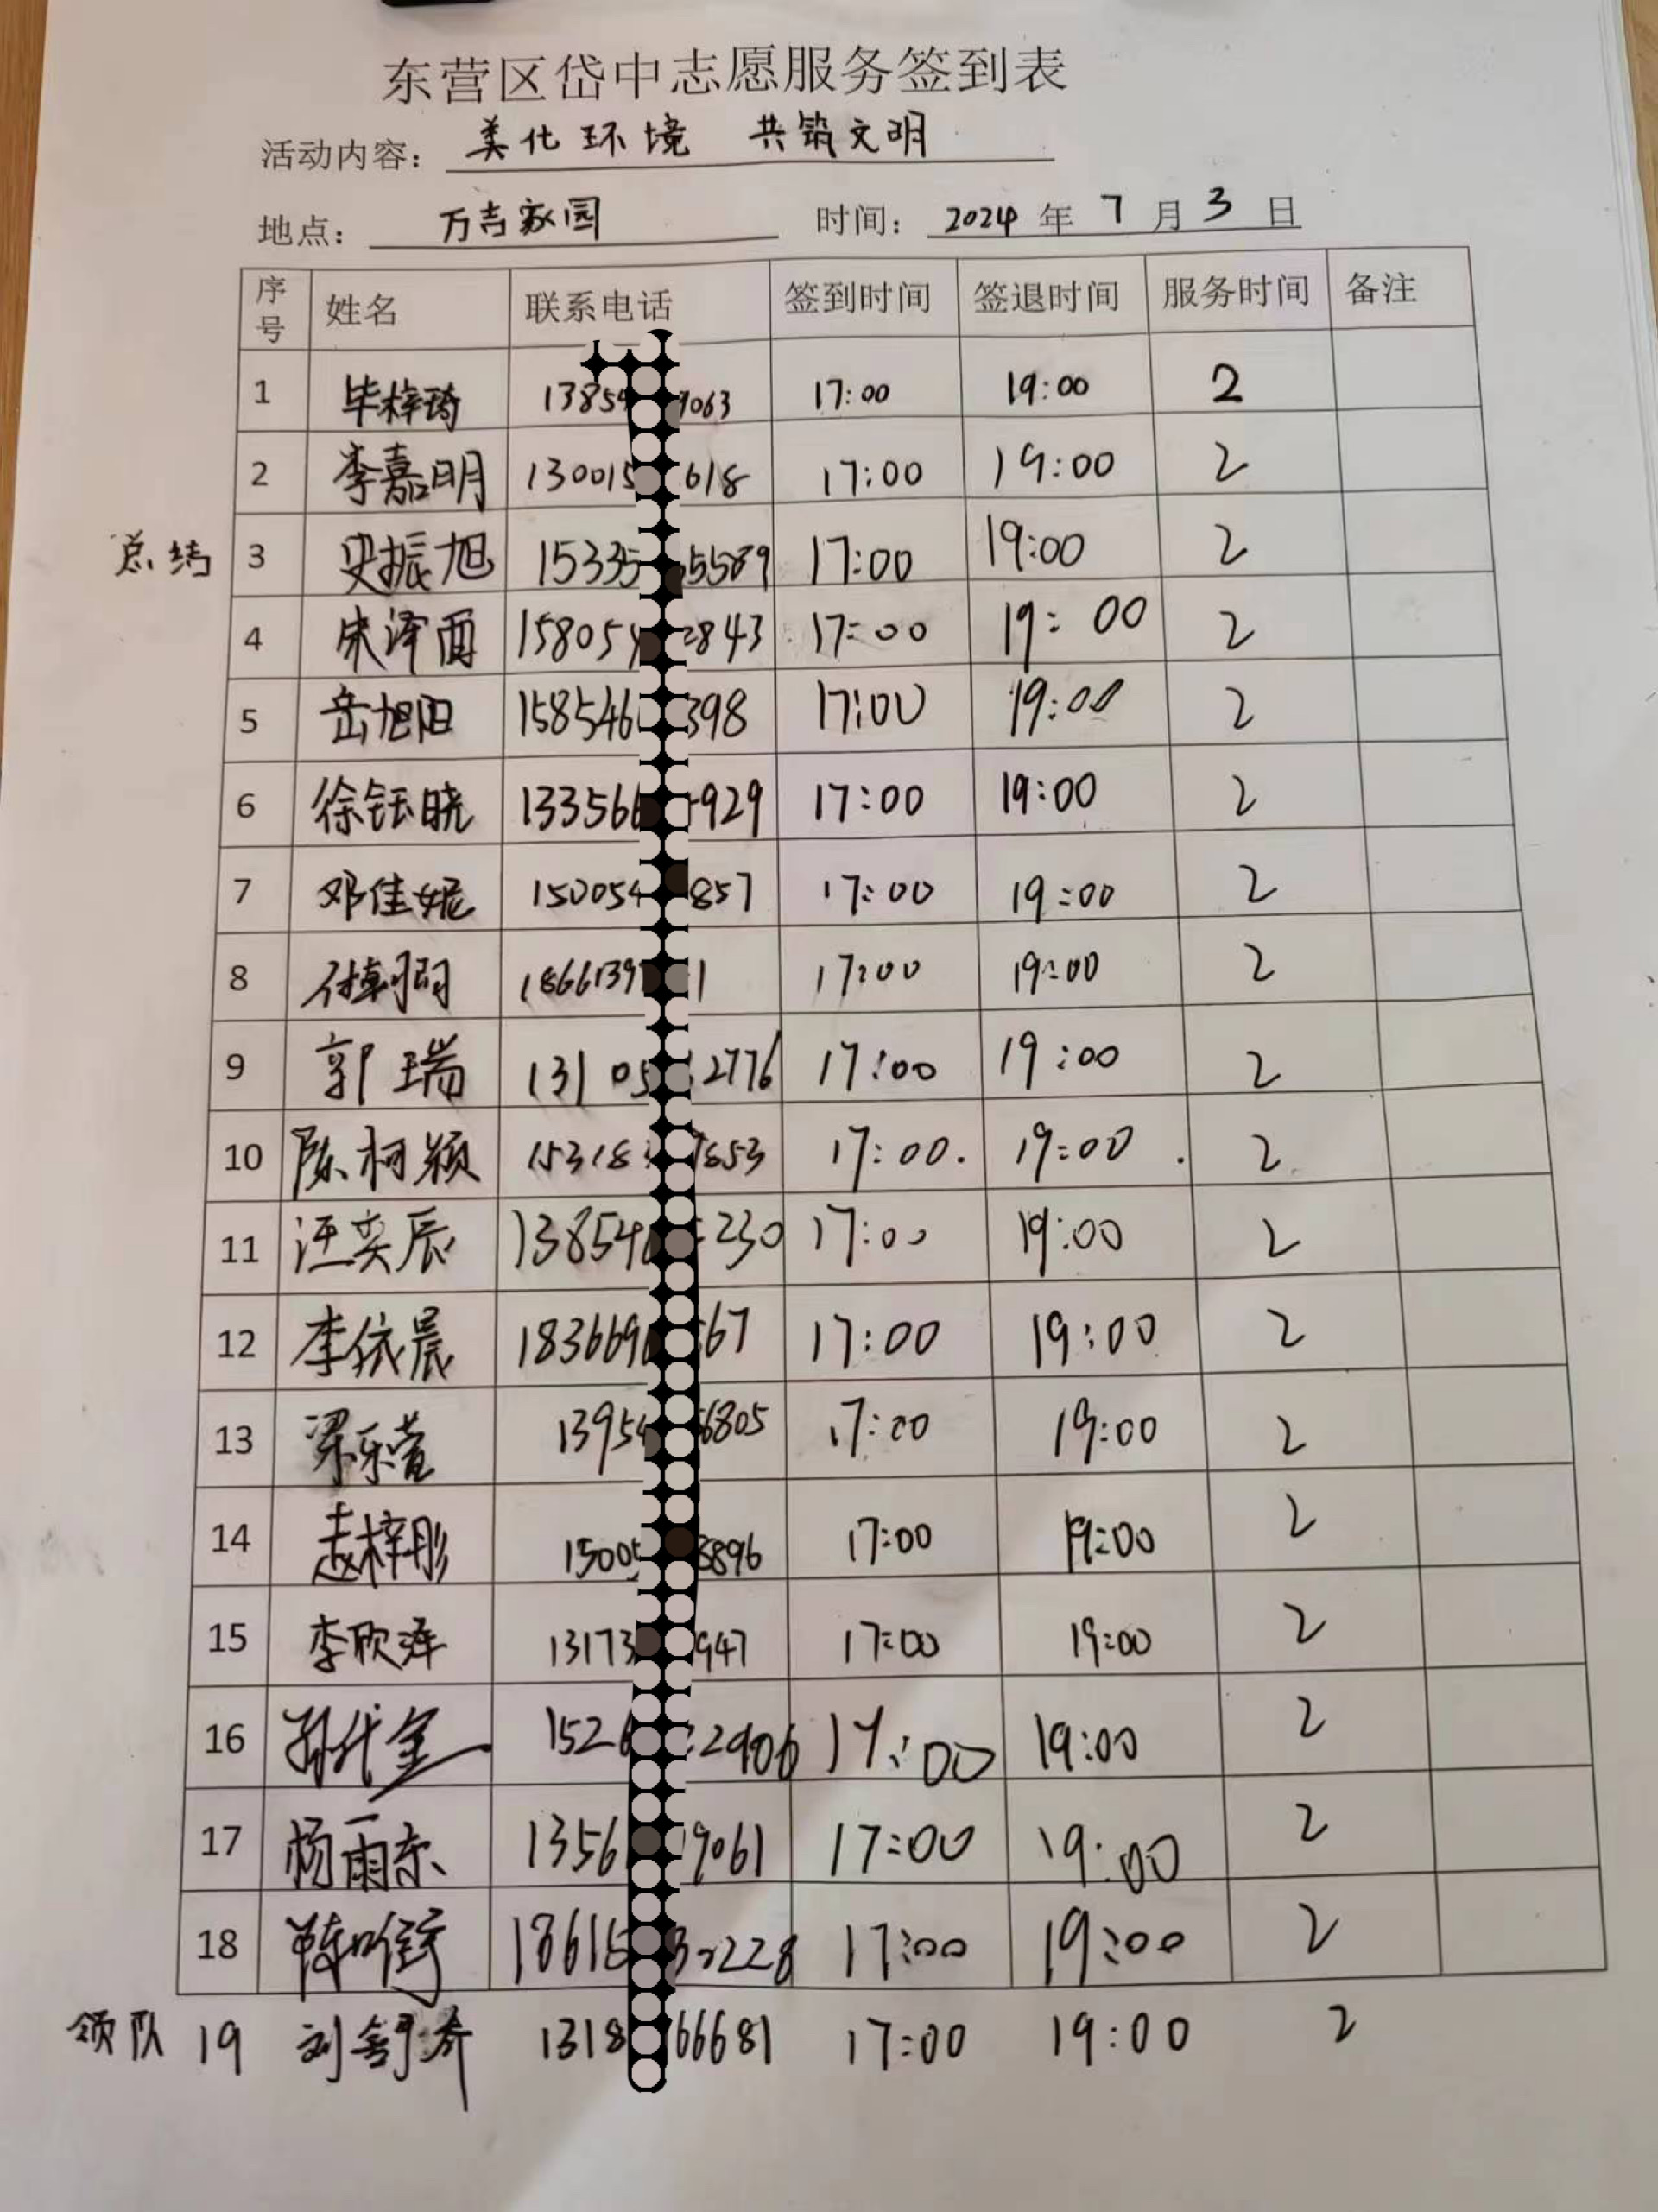 东营区岱中志愿服务签到表
活动内容： 美化环境 共筑文明
地点： 万吉家园 时间： 2024年7月3日
序号 姓名 联系电话 签到时间 签退时间 服务时间 备注
1 毕梓琦 1385 9063 17:00 19:00 2
2 李嘉明 13001 618 17:00 19:00 2
总结 3 史振旭 15335 5589 17:00 19:00 2
4 宋泽 15805 843 17:00 19:00 2
5 岳旭阳 158546 398 17:00 19:00 2
6 徐钰晓 13356 929 17:00 19:00 2
7 邓佳妮 15005 857 17:00 19:00 2
8 186613 1 17:00 19:00 2
9 郭瑞 13105 2776 17:00 19:00 2
10 陈柯颖 15318 853 17:00. 19:00. 2
11 汪奕辰 13854 230 17:00 19:00 2
12 李依晨 183669 67 17:00 19:00 2
13 梁乐萱 1395 6805 17:00 19:00 2
14 赵梓彤 1500 8896 17:00 19:00 2
15 李欣泽 13173 947 17:00 19:00 2
16 152 2906 17:00 19:00 2
17 杨雨东 1356 9061 17:00 19:00 2
18 1861 228 17:00 19:00 2
领队 19 刘舒乔 1318 66681 17:00 19:00 2